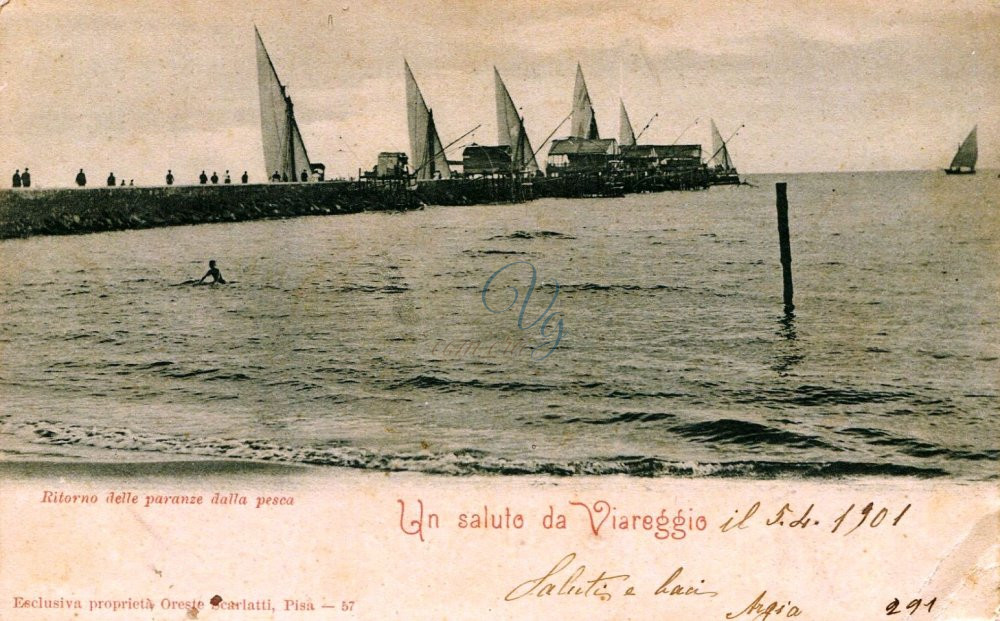 Ritorno delle paranze dalla pesca
Un saluto da Viareggio il 5.4.1901
Saluti e baci
Argia
Esclusiva proprietà Oreste Scarlatti, Pisa — 57
291